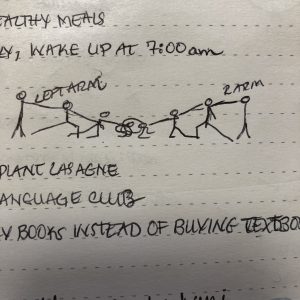 EALTHY MEALS
LY, WAKE UP AT 7:00am
LEFT ARM
R ARM
PLANT LASAGNE
LANGUAGE CLUB
BOOKS INSTEAD OF BUYING TEXTBOO